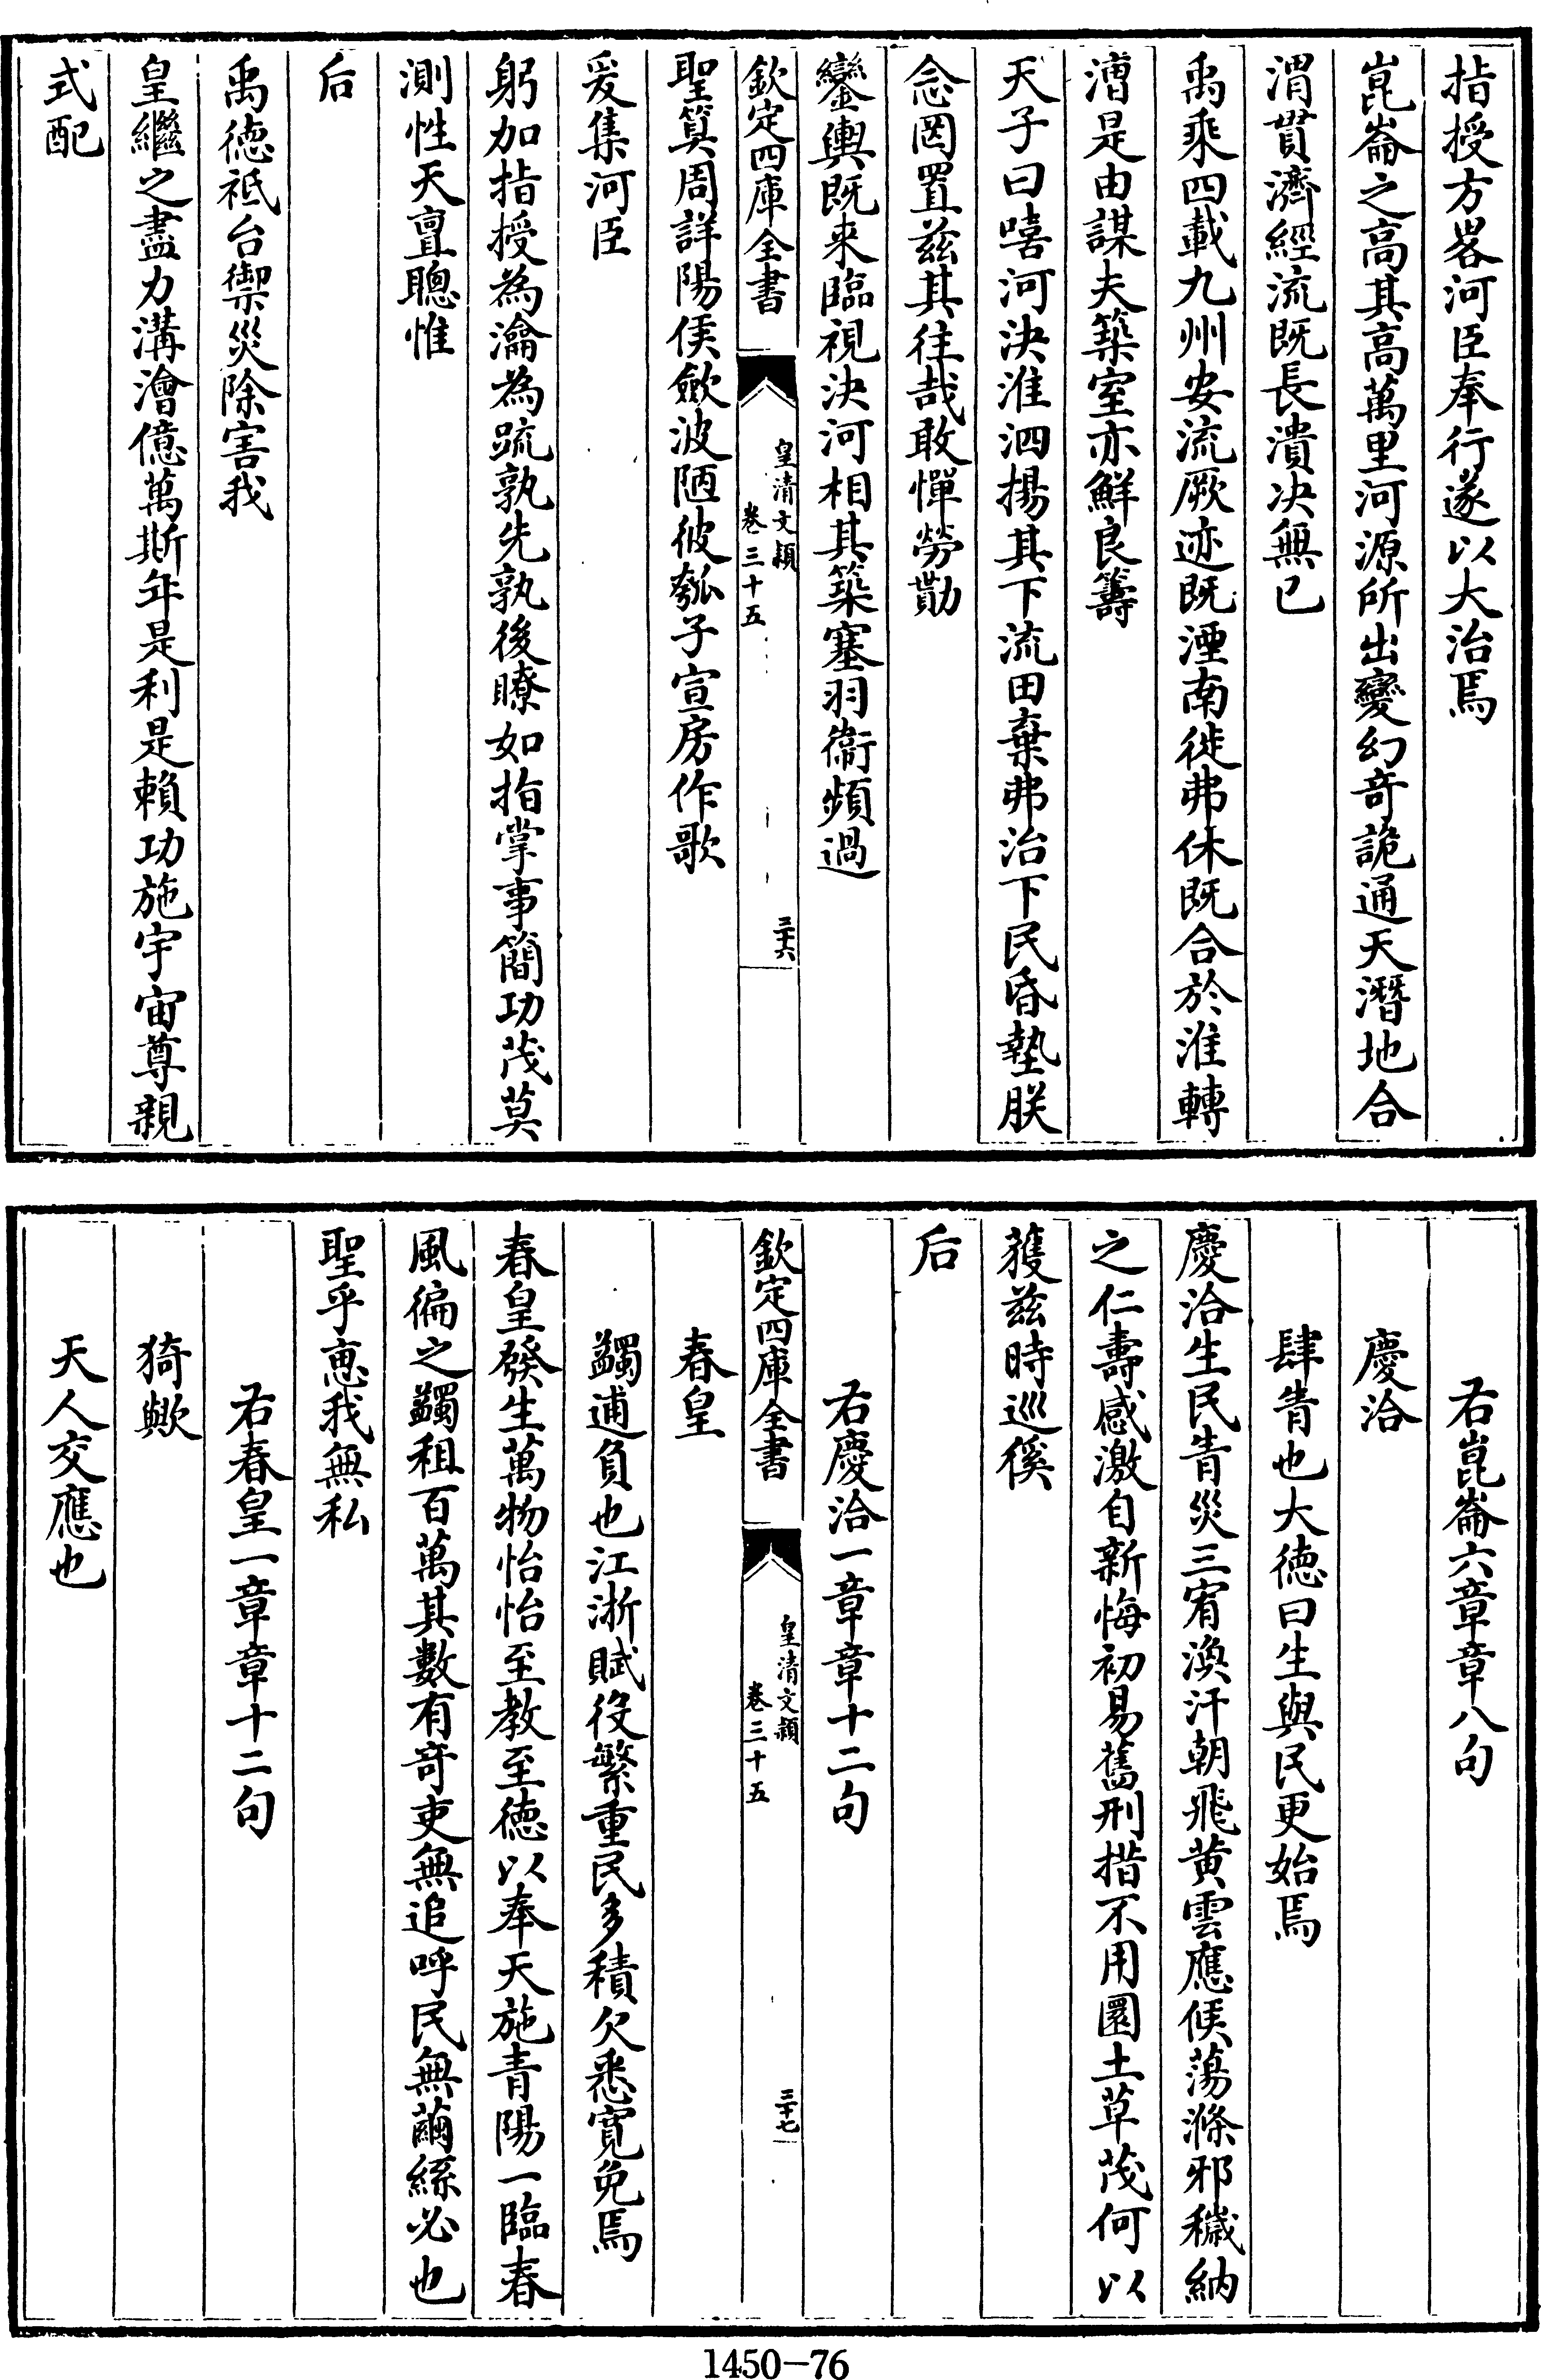 指授方畧河臣奉行遂以大治焉
崑崙之高其高萬里河源所出變幻奇詭通天潛地合
渭貫濟經流既長潰决無已
禹乘四載九州安流厥迹既湮南徙弗休既合於淮轉
漕是由謀夫築室亦鮮良籌
天子曰嘻河決淮泗揚其下流田棄弗治下民昏墊朕
念罔置茲其往哉敢憚勞勩
鑾輿既来臨視決河相其築塞羽衞頻過
欽定四庫全書
皇清文穎
卷三十五
三十六
聖筭周詳陽侯斂波陋彼瓠子宣房作歌
爰集河臣
躬加指授為瀹為疏孰先孰後瞭如指掌事簡功茂莫
測性天亶聰惟
后
禹德祗台禦災除害我
皇繼之盡力溝澮億萬斯年是利是賴功施宇宙尊親
式配
右崑崙六章章八句
慶洽
肆眚也大德曰生與民更始焉
慶洽生民眚災三宥渙汗朝飛黄雲應候蕩滌邪穢納
之仁壽感激自新悔初易舊刑措不用圜土草茂何以
獲茲時巡徯
后
右慶洽一章章十二句
欽定四庫全書
皇清文穎
卷三十五
三十七
春皇
蠲逋負也江浙賦役繁重民多積欠悉寛免焉
春皇發生萬物怡怡至教至德以奉天施青陽一臨春
風徧之蠲租百萬其數有奇吏無追呼民無繭絲必也
聖乎恵我無私
右春皇一章章十二句
猗歟
天人交應也
1450-76